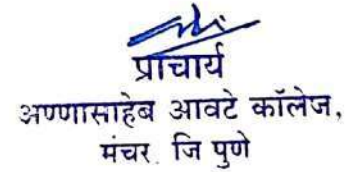 प्राचार्य
अण्णासाहेब आवटे कॉलेज,
मंचर. जि पुणे